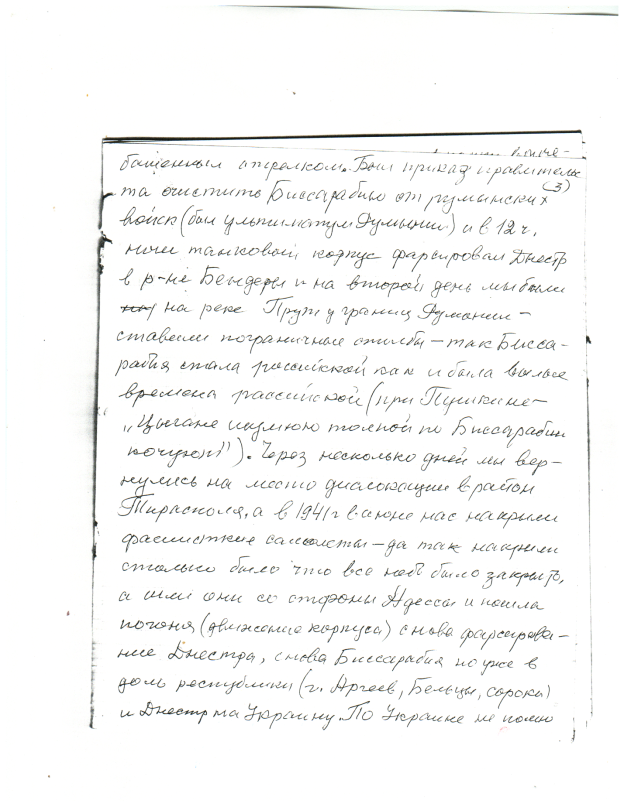 башенным стрелком. Был приказ правительс
(3)
та очистить Биссарабию от румынских
войск (был ультиматум Румынии) и в 12 ч.
ночи танковый корпус фарсировал Днестр
в р-не Бендеры и на второй день мы были
на реке Прут у границ Румынии –
ставили пограничные столбы – так Бисса-
рабия стала российской как и была в былые
времена рассийской (при Пушкине –
„Цыгане шумною толпой по Биссарабии
кочуют"). Через несколько дней мы вер-
нулись на место дислокации в район
Тирасполя, а в 1941 г в июне нас накрыли
фашисткие самолеты – да так накрыли
столько было что все небо было закрыто,
а шли они со стороны Адессы и пошла
погоня (движение корпуса) снова фарсирова-
ние Днестра, снова Биссарабия но уже в
доль республики (г. Аргеев, Бельцы, сорока)
и Днестр на Украину. По Украине не помню